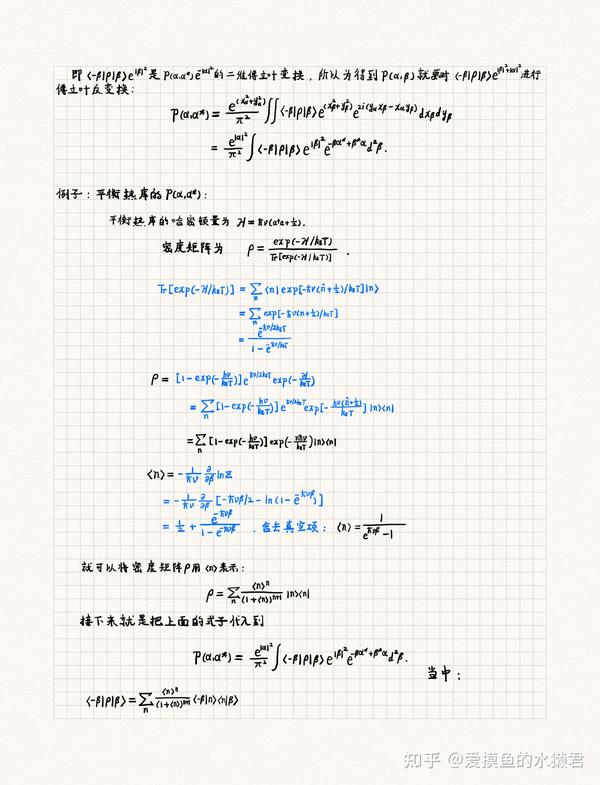 即 ⟨-β|ρ|β⟩e^{|β|²} 是 P(α,α*)e^{-|α|²} 的二维傅立叶变换，所以为得到 P(α,β) 就要对 ⟨-β|ρ|β⟩e^{|β|²+|α|²} 进行
傅立叶反变换：
P(α,α*) = \frac{e^{(x_α²+y_α²)}}{π²} ∬⟨-β|ρ|β⟩ e^{(x_β²+y_β²)} e^{2i(y_α x_β - x_α y_β)} dx_β dy_β
= \frac{e^{|α|²}}{π²} ∫⟨-β|ρ|β⟩ e^{|β|²} e^{-βα*+β*α} d²β.
例子：平衡热库的 P(α,α*)：
平衡热库的哈密顿量为 H = ħν(a†a+½).
密度矩阵为 ρ = \frac{exp(-H/k_BT)}{Tr[exp(-H/k_BT)]} .
Tr[exp(-H/k_BT)] = ∑_n ⟨n|exp[-ħν(n̂+½)/k_BT]|n⟩
= ∑_n exp[-ħν(n+½)/k_BT]
= \frac{e^{-ħν/2k_BT}}{1-e^{-ħν/k_BT}}
ρ = [1-exp(-\frac{ħν}{k_BT})] e^{ħν/2k_BT} exp(-\frac{H}{k_BT})
= ∑_n [1-exp(-\frac{ħν}{k_BT})] e^{ħν/2k_BT} exp[-\frac{ħν(n̂+½)}{k_BT}] |n⟩⟨n|
= ∑_n [1-exp(-\frac{ħν}{k_BT})] exp(-\frac{nħν}{k_BT}) |n⟩⟨n|
⟨n⟩ = -\frac{1}{ħν} \frac{∂}{∂β} lnZ
= -\frac{1}{ħν} \frac{∂}{∂β} [-ħνβ/2 - ln(1-e^{-ħνβ})]
= ½ + \frac{e^{-ħνβ}}{1-e^{-ħνβ}} . 舍去真空项： ⟨n⟩ = \frac{1}{e^{ħνβ}-1}
就可以将密度矩阵ρ用⟨n⟩表示：
ρ = ∑_n \frac{⟨n⟩^n}{(1+⟨n⟩)^{n+1}} |n⟩⟨n|
接下来就是把上面的式子代入到
P(α,α*) = \frac{e^{|α|²}}{π²} ∫⟨-β|ρ|β⟩ e^{|β|²} e^{-βα*+β*α} d²β.
当中：
⟨-β|ρ|β⟩ = ∑_n \frac{⟨n⟩^n}{(1+⟨n⟩)^{n+1}} ⟨-β|n⟩⟨n|β⟩
知乎 @爱摸鱼的水獭君